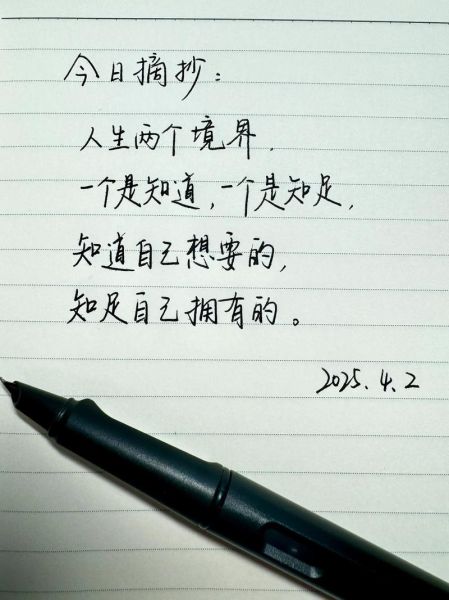 今日摘抄：
人生两个境界，
一个是知道，一个是知足，
知道自己想要的，
知足自己拥有的。
2025.4.2